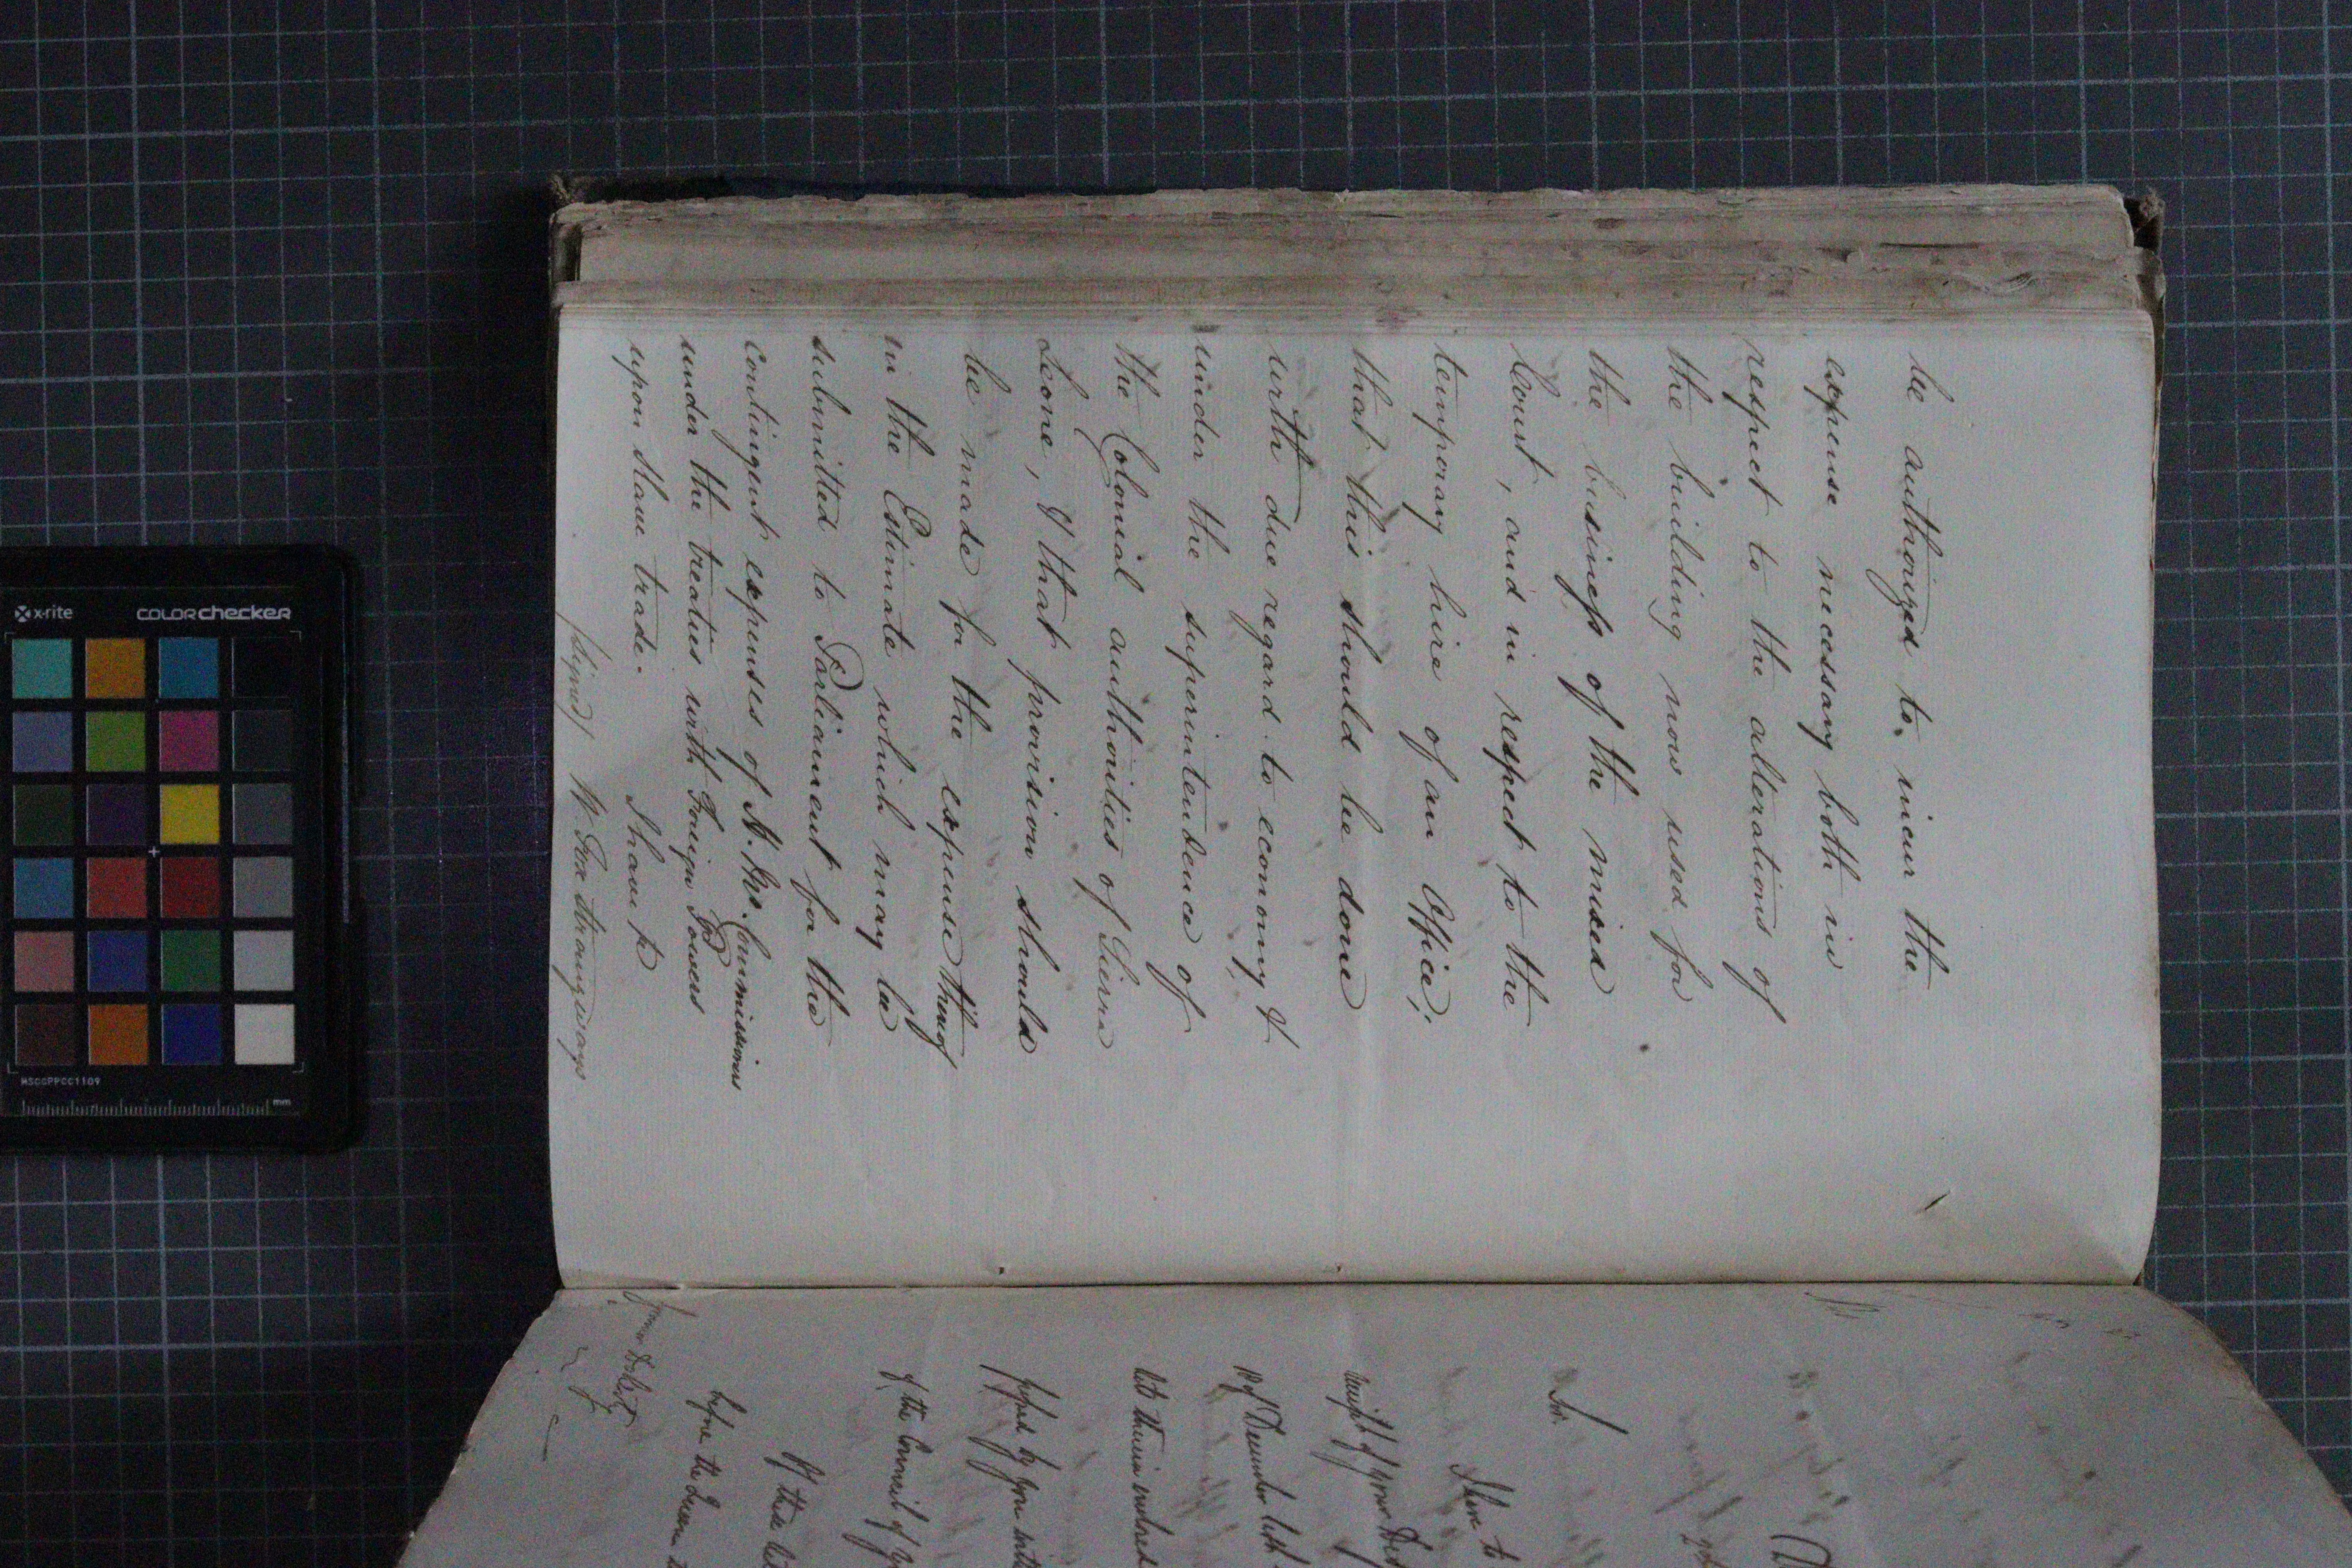 be authorized to incur the
expense necessary both in
respect to the alterations of
the building now used for
the business of the mixed
Court, and in respect to the
temporary hire of an Office;
that this should be done
with due regard to economy &
under the superintendence of
the Colonial authorities of Sierra
Leone, & that provision should
be made for the expense thereof
in the Estimate which may be
submitted to Parliament for the
contingent expenses of H. Ms. Commissioners
under the treaties with Foreign Powers
upon slave trade.
I have &c
(signed) W. Fox Strangways
Sir.
I have to
receipt of your
of December last
before the Queen
of the Council of
x-rite
colorchecker
MSCCPPCC1109
mm